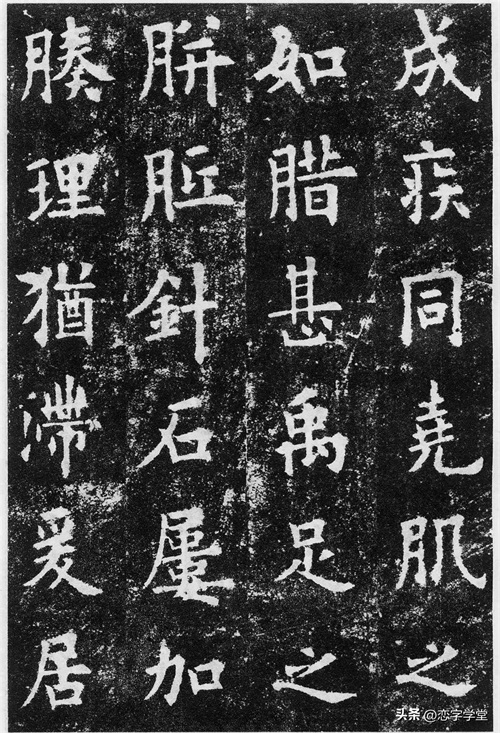 成疾同堯肌之
如腊甚禹足之
胼胝針石屢加
腠理猶滯爰居
头条@恋字学堂